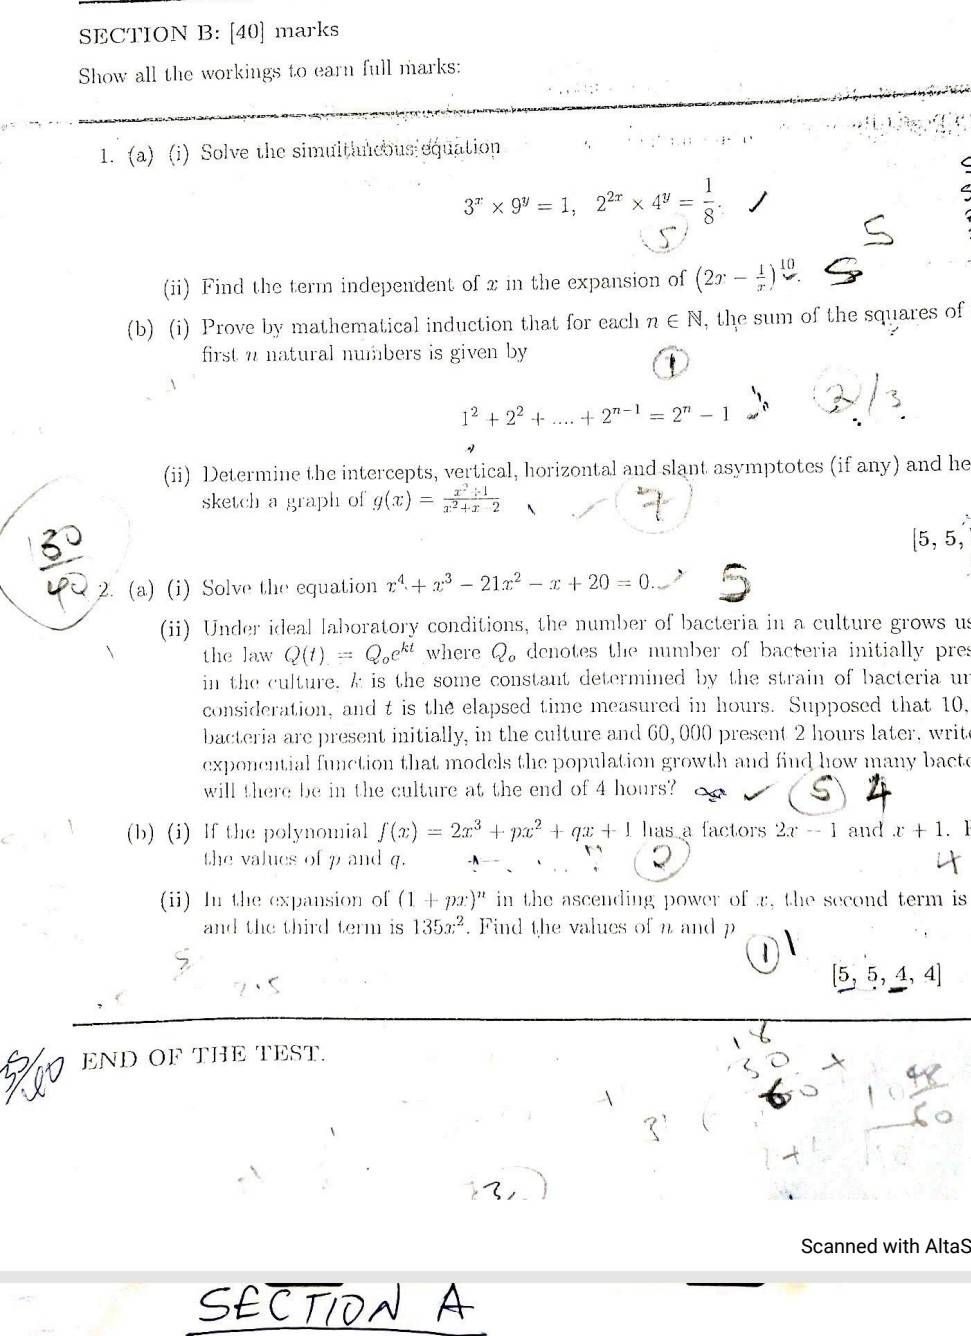 SECTION B: [40] marks
Show all the workings to earn full marks:
1. (a) (i) Solve the simultaneous equation
3^x × 9^y = 1, 2^{2x} × 4^y = 1/8.
5
5
(ii) Find the term independent of x in the expansion of (2x − 1/x)^10.
5
(b) (i) Prove by mathematical induction that for each n ∈ ℕ, the sum of the squares of
first n natural numbers is given by
1
1² + 2² + .... + 2^{n−1} = 2^n − 1
2/3
(ii) Determine the intercepts, vertical, horizontal and slant asymptotes (if any) and he
sketch a graph of g(x) = (x²+1)/(x²+x−2)
7
[5, 5,
30/40
2. (a) (i) Solve the equation x⁴ + x³ − 21x² − x + 20 = 0.
5
(ii) Under ideal laboratory conditions, the number of bacteria in a culture grows
the law Q(t) = Q₀e^{kt} where Q₀ denotes the number of bacteria initially pres
in the culture, k is the some constant determined by the strain of bacteria un
consideration, and t is the elapsed time measured in hours. Supposed that 10,
bacteria are present initially, in the culture and 60,000 present 2 hours later, write
exponential function that models the population growth and find how many bacte
will there be in the culture at the end of 4 hours?
5 4
(b) (i) If the polynomial f(x) = 2x³ + px² + qx + 1 has a factors 2x − 1 and x + 1.
the values of p and q.
2
4
(ii) In the expansion of (1 + px)^n in the ascending power of x, the second term is
and the third term is 135x². Find the values of n and p
1
[5, 5, 4, 4]
7.5
END OF THE TEST.
18
30
60
48/60
Scanned with AltaS
SECTION A